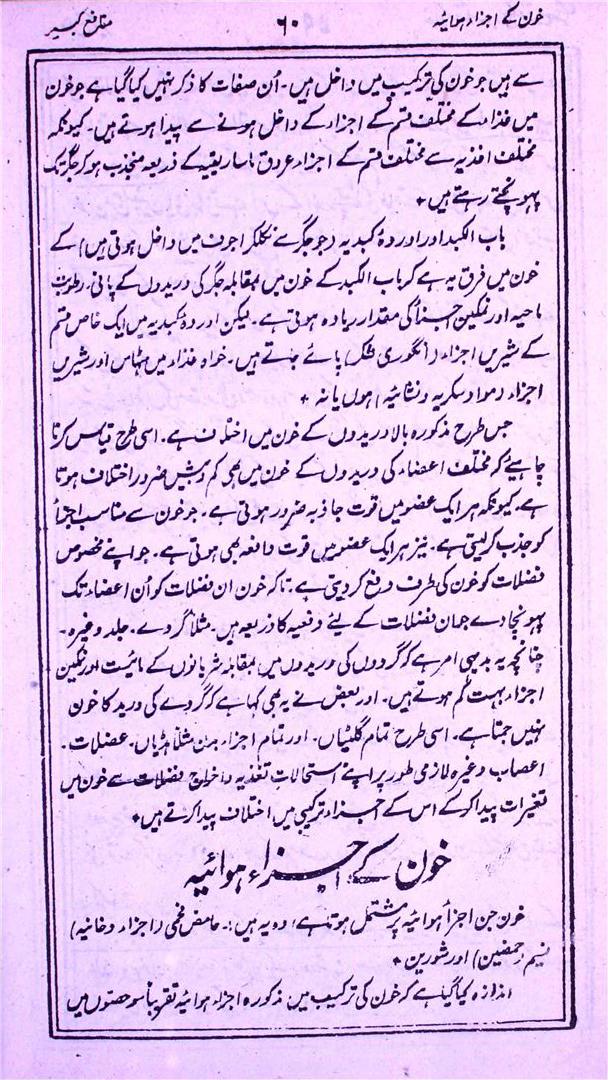 خون کے اجزاء ہوائیہ ۶۰ منافع کبیر
سے ہیں جو خون کی ترکیب میں داخل ہیں۔ اُن صفات کا ذکر نہیں کیا گیا ہے جو خون
میں غذاء کے مختلف قسم کے اجزاء کے داخل ہونے سے پیدا ہوتے ہیں۔ کیونکہ
مختلف اغذیہ سے مختلف قسم کے اجزاء عروق ماساریقیہ کے ذریعہ منجذب ہو کر جگر تک
پہونچتے رہتے ہیں +
باب الکبد اور اوردۂ کبدیہ (جو جگر سے نکلکر اجوف میں داخل ہوتی ہیں) کے
خون میں فرق یہ ہے کہ باب الکبد کے خون میں بمقابلہ جگر کی وریدوں کے پانی، رطوبت
ماحیہ اور نمکین اجزاء کی مقدار زیادہ ہوتی ہے۔ لیکن اوردۂ کبدیہ میں ایک خاص قسم
کے شیریں اجزاء (انگوری شکر) پائے جاتے ہیں۔ خواہ غذاء میں مٹھاس اور شیریں
اجزاء (مواد سکریہ و نشائیہ) ہوں یا نہ +
جس طرح مذکورہ بالا وریدوں کے خون میں اختلاف ہے۔ اسی طرح قیاس کرنا
چاہیئے کہ مختلف اعضاء کی وریدوں کے خون میں بھی کم و بیش ضرور اختلاف ہوتا
ہے۔ کیونکہ ہر ایک عضو میں قوت جاذبہ ضرور ہوتی ہے۔ جو خون سے مناسب اجزاء
کو جذب کر لیتی ہے۔ نیز ہر ایک عضو میں قوت دافعہ بھی ہوتی ہے۔ جو اپنے مخصوص
فضلات کو خون کی طرف دفع کر دیتی ہے۔ تاکہ خون ان فضلات کو اُن اعضاء تک
پہونچا دے جو ان فضلات کے لیئے دفعیہ کا ذریعہ ہیں۔ مثلاً گردے۔ جلد وغیرہ۔
چنانچہ یہ بدیہی امر ہے کہ گردوں کی وریدوں میں بمقابلہ شریانوں کے مائیت اور نمکین
اجزاء بہت کم ہوتے ہیں۔ اور بعض نے یہ بھی کہا ہے کہ گردے کی ورید کا خون
نہیں جمتا ہے۔ اسی طرح تمام گلٹیاں۔ اور تمام اجزاء بدن مثلاً ہڈیاں۔ عضلات۔
اعصاب وغیرہ لازمی طور پر اپنے استحالات تغذیہ و اخراج فضلات سے خون میں
تغیرات پیدا کر کے اس کے اجزاء ترکیبی میں اختلاف پیدا کرتے ہیں +
خون کے اجزاء ہوائیہ
خون جن اجزاء ہوائیہ پر مشتمل ہوتا ہے، وہ یہ ہیں:۔ حامض فحمی (اجزاء دخانیہ)
نسیم (حمضین) اور شورین +
اندازہ کیا گیا ہے کہ خون کی ترکیب میں مذکورہ اجزاء ہوائیہ تقریباً سو حصتوں میں